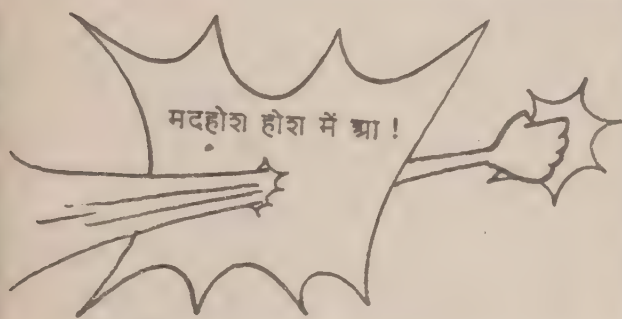 मदहोश होश में आ !